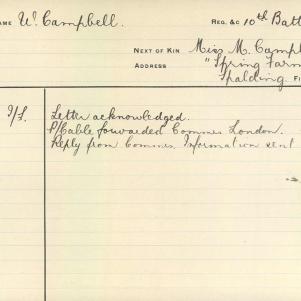 NAME W. Campbell. REG. &C 10th Batt
NEXT OF KIN Miss M. Camp
ADDRESS "Spring Farm
Spalding.
Letter acknowledged.
P/Cable forwarded Commes London.
Reply from Commes. Information sent